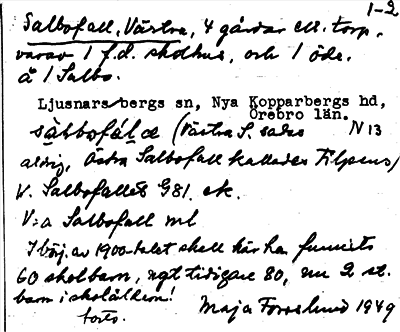 1-2
Salbofall, Västra, 4 gårdar ell. torp,
varav 1 f.d. skolhus, och 1 öde.
å 1 Salbo.
Ljusnarsbergs sn, Nya Kopparbergs hd,
Örebro län.
(Västra S. sades N 13
aldrig, Östra Salbofall kallades Filpens)
V. Salbofallet G81. ek.
V:a Salbofall ml
I börj. av 1900-talet skall här ha funnits
60 skolbarn, ngt tidigare 80, nu 2 st.
barn i skolåldern!
forts. Maja Forslund 1949